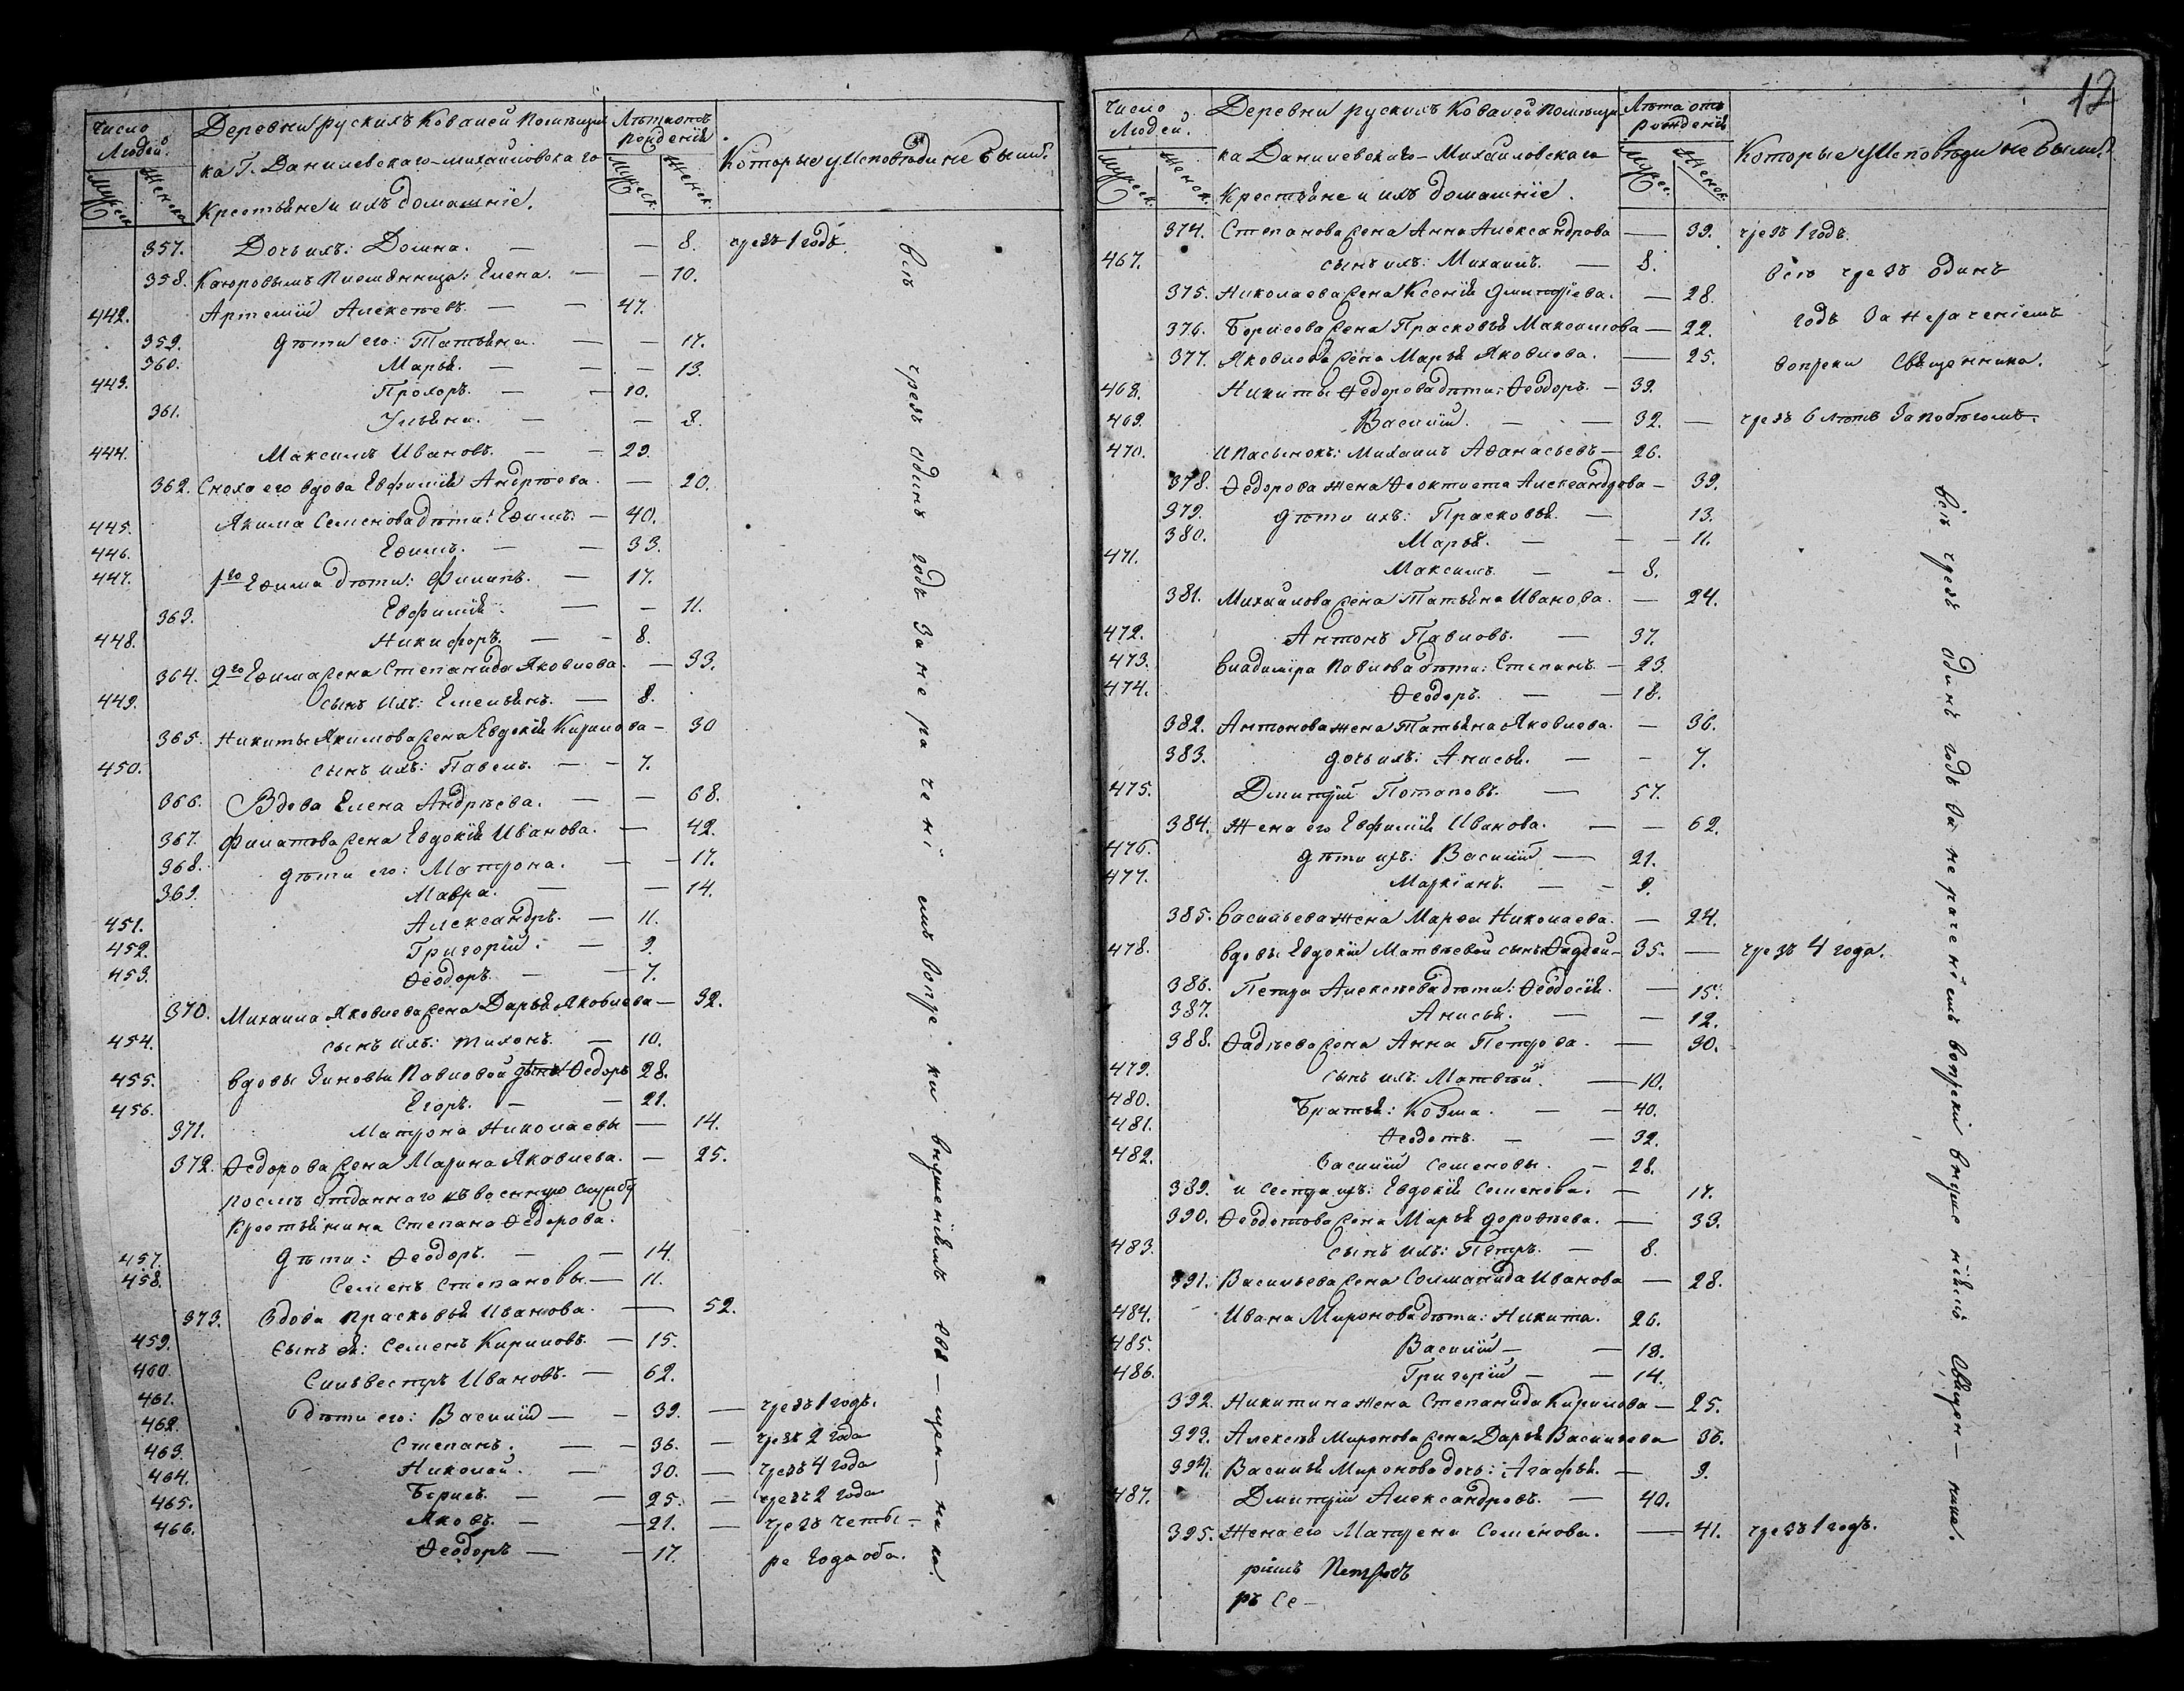 Число Людей.
Мужеск. Женска.
Деревни руских Ковалей помѣщи
ка Г. Данилевскаго-Михайловскаго
Крестьяне и ихъ домашніе.
Лѣта отъ рожденія
Мужеск. Женск.
Которые у Исповѣди не были.
357. Дочь ихъ: Домна. — — 8. чрезъ 1 годъ
358. племянница: Елена. — — 10.
442. Артемій Алексѣевъ. — — 47.
359. Дѣти его: Татьяна. — — 17.
360. Марья. — — 13.
443. Прохоръ. — — 10.
361. Ульяна. — — 8.
444. Максимъ Ивановъ. — — 29.
362. Сноха его вдова Евфимія Андрѣева. — 20.
445. Якима Семенова дѣти: Ефимъ. — 40.
446. Ефимъ. — — 33.
447. 1го Ефима дѣти: Филипъ. — 17.
363. Евфимія. — — 11.
448. Никифоръ. — — 8.
364. 2го Ефима жена Степанида Яковлева. — 33.
449. сынъ ихъ: Емельянъ. — 8.
365. Никиты Якимова жена Евдокія Кирилова — 30
450. сынъ ихъ: Павелъ. — — 7.
366. Вдова Елена Андрѣева. — — 68.
367. Филатова жена Евдокія Иванова. — 42.
368. Дѣти его: Матрона. — — 17.
369. Мавра. — — 14.
451. Александръ. — 11.
452. Григорій. — 9.
453. Ѳеодоръ. — — 7.
370. Михаила Яковлева жена Дарья Яковлева — 32.
454. сынъ ихъ: Тихонъ. — 10.
455. вдовы Зиновьи Павловой дѣти Ѳедоръ 28.
456. Егоръ. — — 21.
371. Матрона Николаевы — 14.
372. Ѳедорова жена Марина Яковлева. — 25.
послѣ отданнаго въ военную службу
крестьянина Степана Ѳедорова.
457. Дѣти: Ѳеодоръ. — — 14.
458. Семенъ Степановы. — 11.
373. Вдова Прасковья Иванова. — 52.
459. Сынъ ея: Семенъ Кириловъ. — 15.
460. Сильвестръ Ивановъ. — 62.
461. Дѣти его: Василій — — 39. — чрезъ 1 годъ.
462. Степанъ. — — 36. — чрезъ 2 года
463. Николай. — 30. — чрезъ 4 года
464. Борисъ. — — 25. — чрезъ 2 года
465. Яковъ. — — 21. — чрезъ четы-
466. Ѳеодоръ — — 17. ре года оба.
всѣ чрезъ одинъ годъ за нераченіемъ вопреки внушеніямъ свя-щен-ника.
12
Число Людей.
Мужеск. Женск.
Деревни рускихъ Ковалей помѣщи
ка Данилевскаго-Михайловскаго
Крестьяне и ихъ домашніе.
Лѣта отъ рожденія
Мужес. Женск.
Которые у Исповѣди не были.
374. Степанова жена Анна Александрова — 39. чрезъ 1 годъ.
467. сынъ ихъ: Михаилъ. — 8.
всѣ чрезъ одинъ
375. Николаева жена Ксенія Дмитріева. — 28.
годъ за нераченіемъ
376. Борисова жена Прасковья — 22.
377. Яковлева жена Марья Яковлева. — 25.
вопреки Священника.
468. Никиты Ѳедорова дѣти: Ѳеодоръ. — 39.
469. Василій. — — 32. — чрезъ 6 лѣтъ за побѣгомъ.
470. и пасынокъ: Михаилъ Аѳанасьевъ — 26.
378. Ѳедорова жена Ѳеоктиста Александрова — 39.
379. Дѣти ихъ: Прасковья. — 13.
380. Марья. — — 11.
471. Максимъ. — — 8.
381. Михайлова жена Татьяна Иванова. — 24.
472. Антонъ Павловъ. — 37.
473. Владиміра Павлова дѣти: Степанъ — 23.
474. Ѳеодоръ. — — 18.
382. Антонова жена Татьяна Яковлева. — 36.
383. Дочь ихъ: Анисья. — — 7.
475. Дмитрій Потаповъ. — 57.
384. Жена его Евфимія Иванова. — — 62.
476. Дѣти ихъ: Василій — 21.
477. Маркіанъ. — — 9.
385. Васильева жена Марѳа Николаева. — 24.
478. вдовы Евдокіи Матвѣевой сынъ Ѳадей — 35. — чрезъ 4 года.
386. Петра Алексѣева дѣти: Ѳеодосія. — 15.
387. Анисья. — — 12.
388. Ѳадѣева жена Анна Петрова. — 30.
479. сынъ ихъ: Матвѣй. — 10.
480. Братья: Козма. — — 40.
481. Ѳеодотъ. — — 32.
482. Василій Семеновы. — 28.
389. и сестра ихъ: Евдокія Семенова. — 17.
390. Ѳеодотова жена Марья Дороѳѣева. — 33.
483. сынъ ихъ: Петръ. — 8.
391. Васильева жена Соломанида Иванова — 28.
484. Ивана Миронова дѣти: Никита. 26.
485. Василій — — 18.
486. Григорій — — 14.
392. Никитина жена Степанида Кирилова — 25.
393. Алексѣя Миронова жена Дарья Васильева 36.
394. Василья Миронова дочь: Агафья. — 9.
487. Дмитрій Александровъ. — 40.
395. Жена его Матрена Семенова. — 41. чрезъ 1 годъ.
Петровъ
ръ Се-
всѣ чрезъ одинъ годъ за нераченіемъ вопреки внушеніямъ Священ-ника.